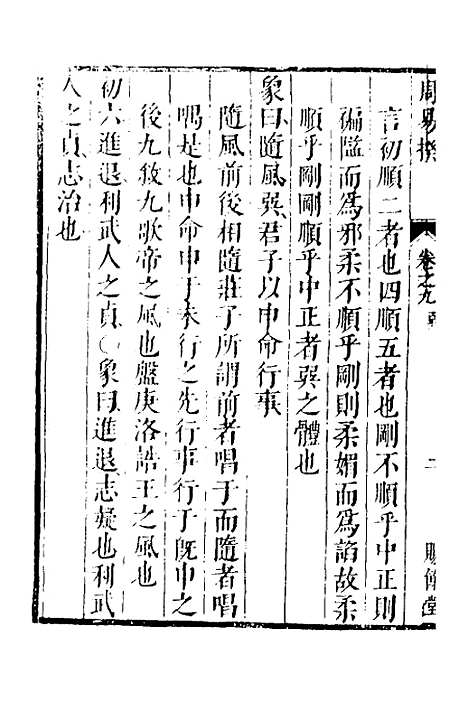 周易撰
卷之九
二
賜價堂
言初順二者也四順五者也剛不順乎中正則
褊隘而爲邪柔不順乎剛則柔媚而爲諂故柔
順乎剛剛順乎中正者巽之體也
象曰隨風巽君子以申命行事
隨風前後相隨莊子所謂前者唱于而隨者唱
喁是也申命申于未行之先行事行于旣申之
後九敘九歌帝之風也盤庚洛誥王之風也
初六進退利武人之貞○象曰進退志疑也利武
人之貞志治也